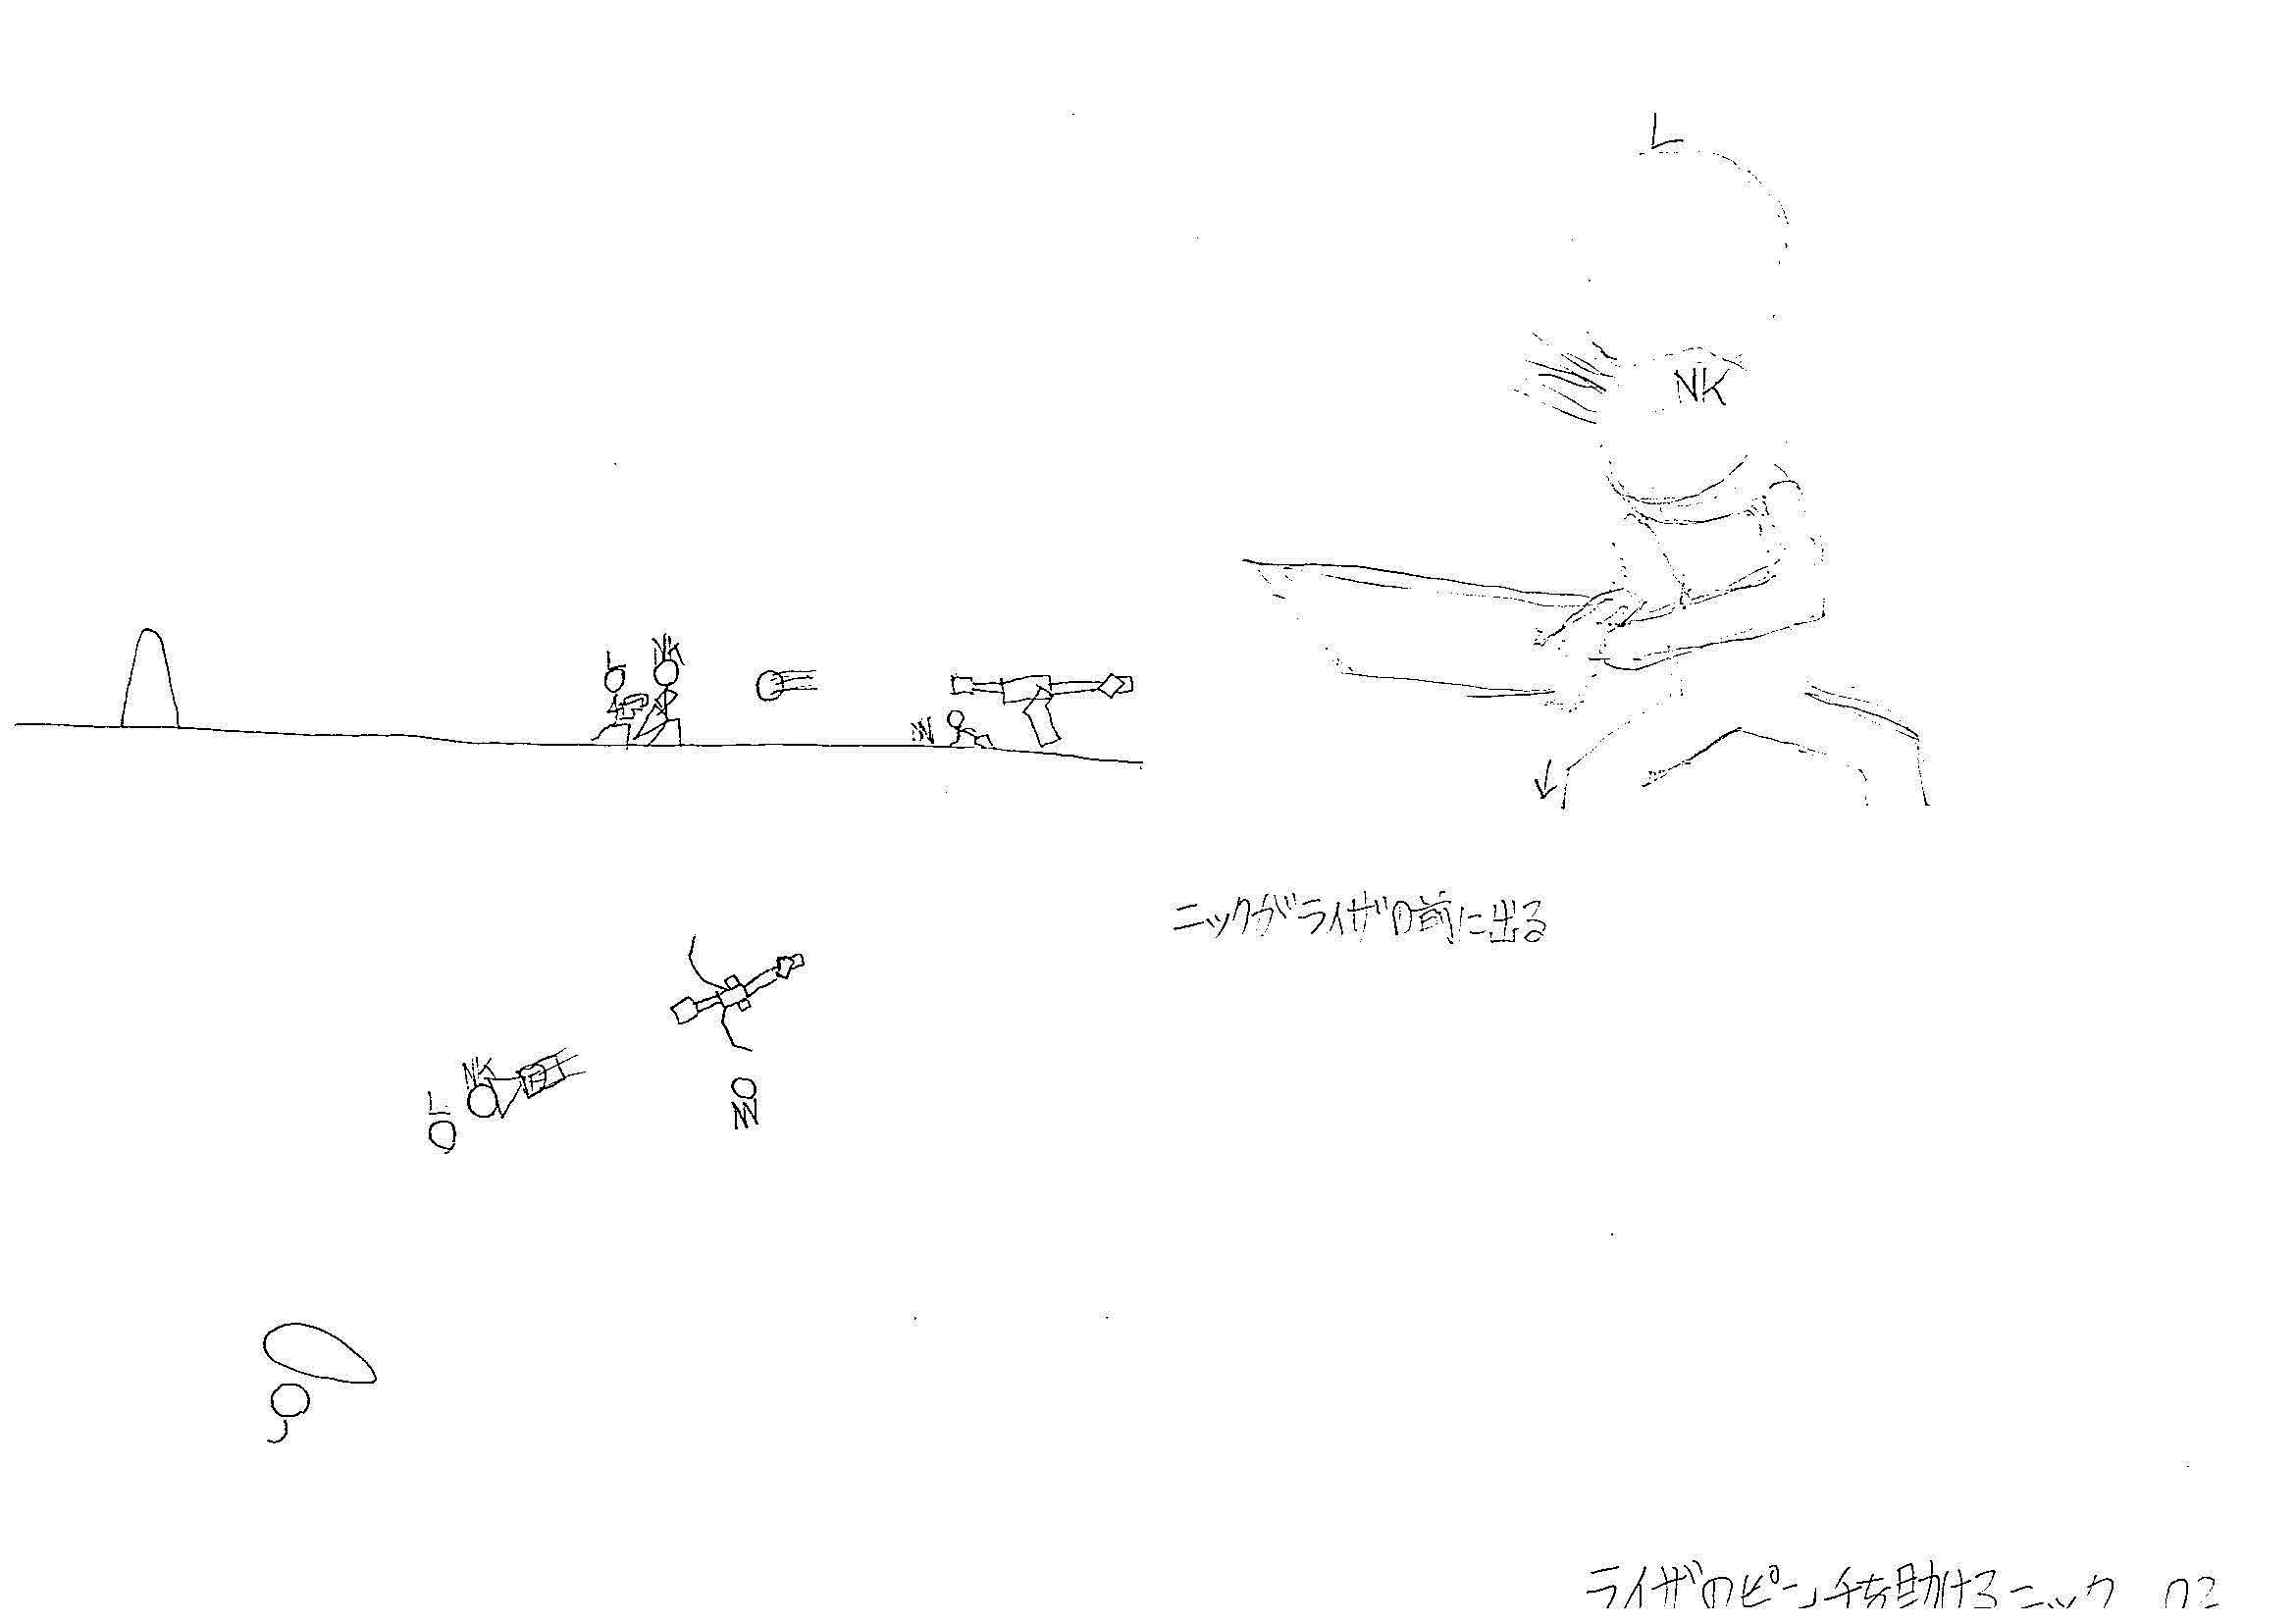 L
NK
L
NK
N
ニックがライザの前に出る
NK
L
N
ライザのピンチを助けるニック